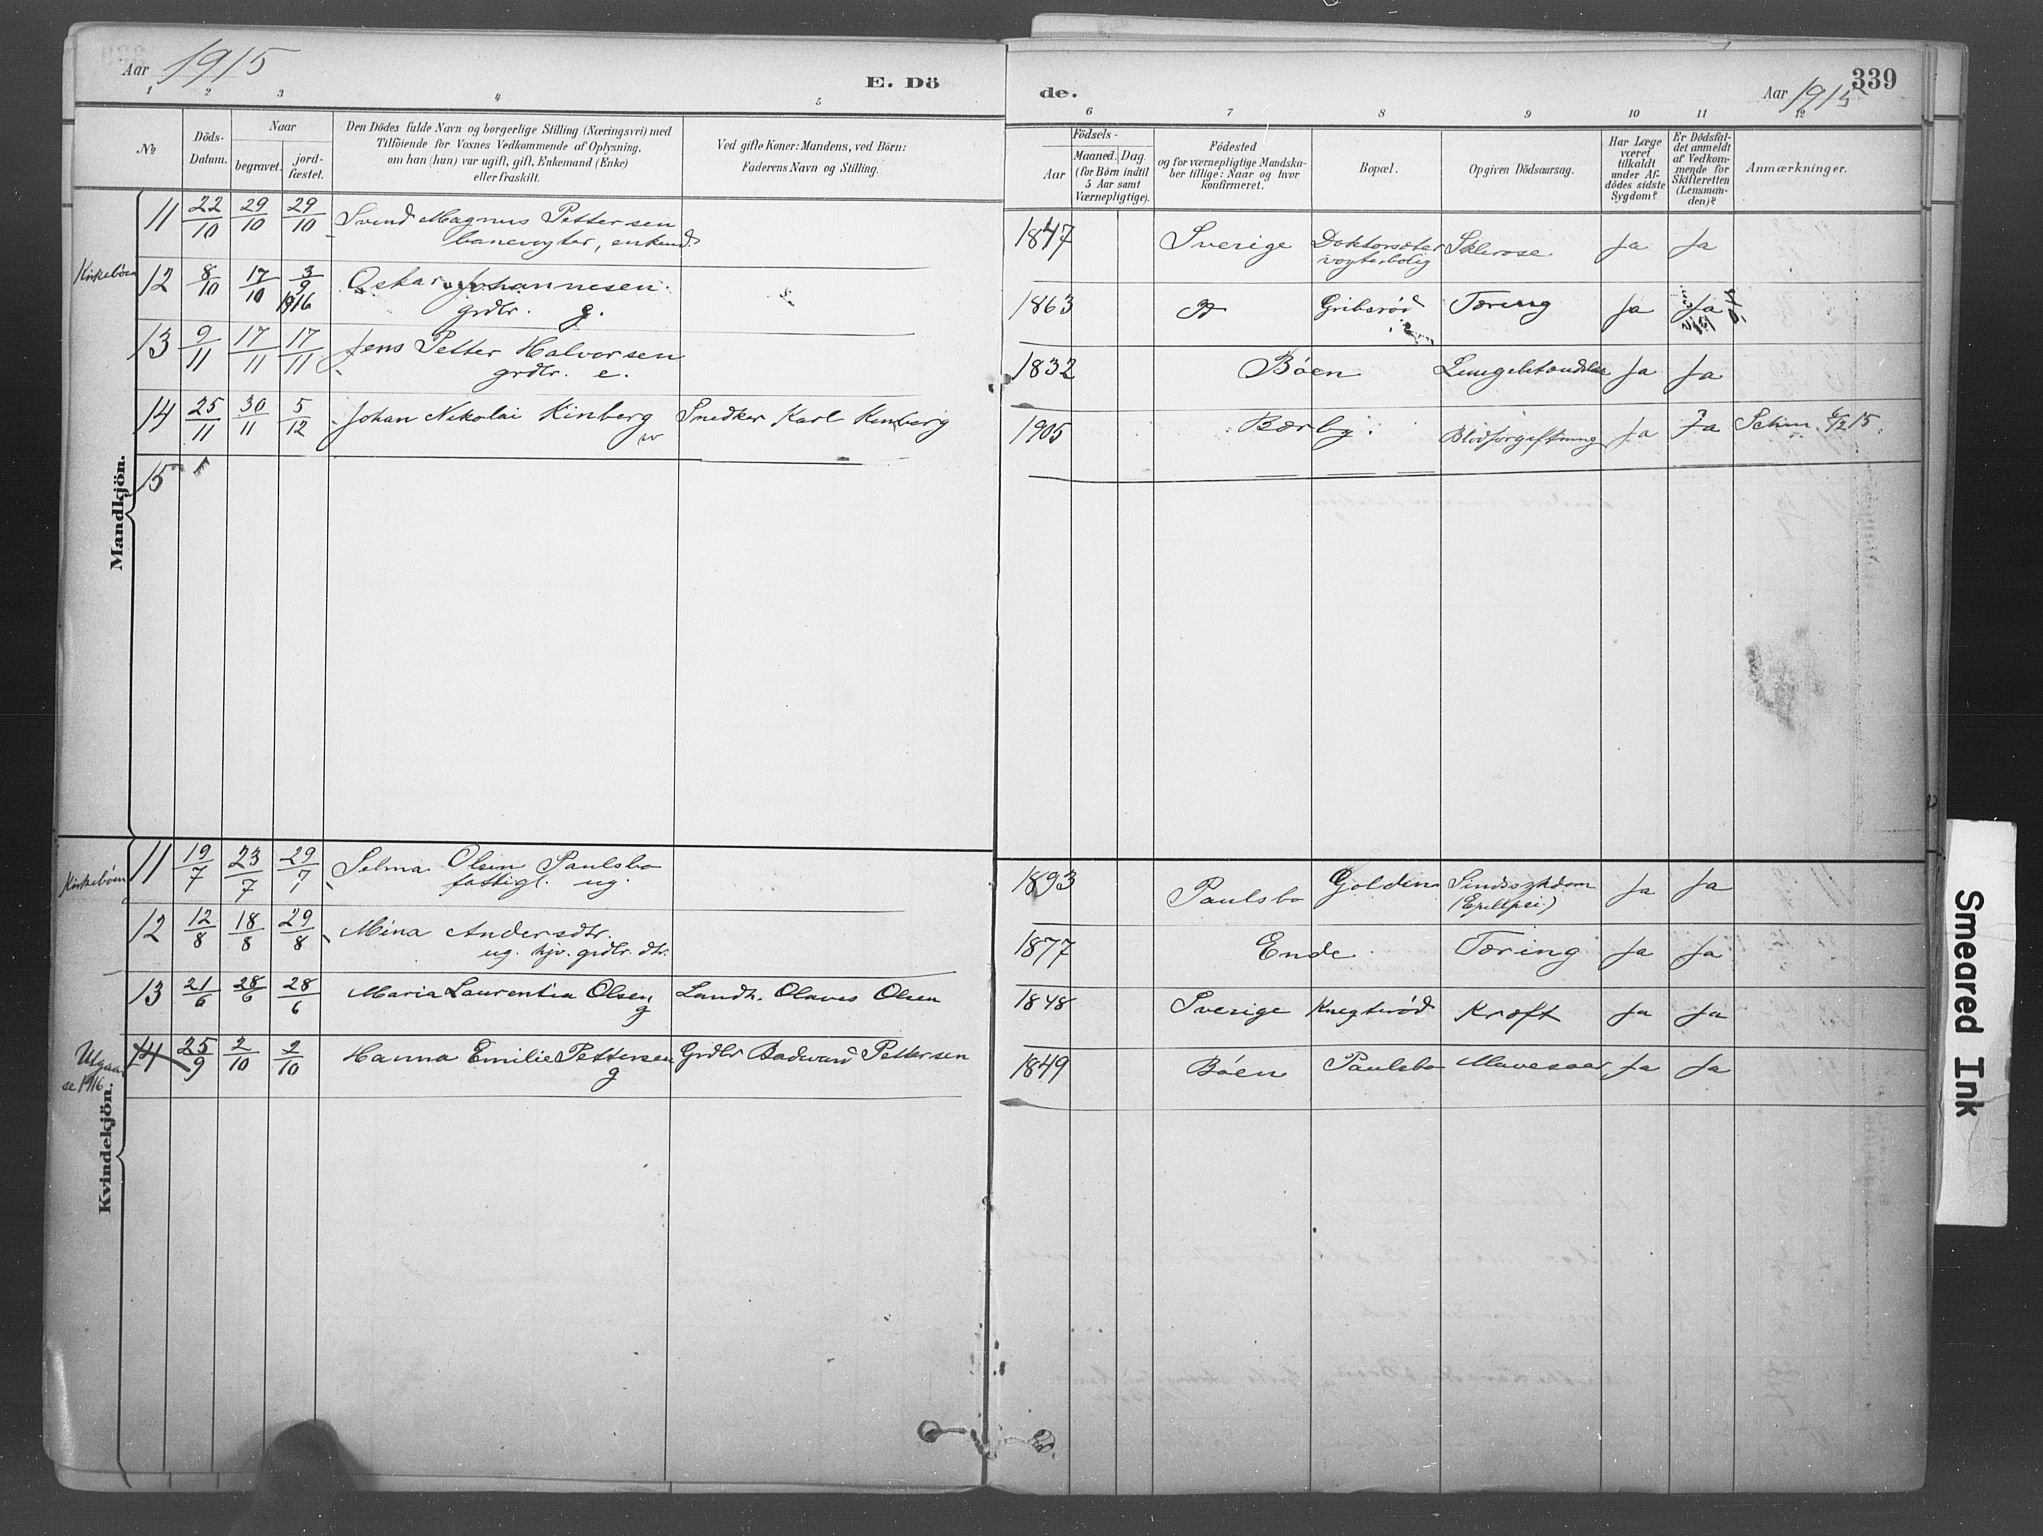 Aar 1915
E. Döde.
Aar 1915
339
1 2 3 4 5 6 7 8 9 10 11 12
№
Döds-Datum.
Naar
begravet.
jord-fæstet.
Den Dödes fulde Navn og borgerlige Stilling (Næringsvei) med
Tilföiende for Voxnes Vedkommende af Oplysning,
om han (hun) var ugift, gift, Enkemand (Enke)
eller fraskilt.
Ved gifte Koner: Mandens, ved Börn:
Faderens Navn og Stilling.
Födsels-
Aar
Maaned. Dag.
(for Börn indtil
5 Aar samt
Værnepligtige).
Födested
og for værnepligtige Mandska-
ber tillige: Naar og hvor
konfirmeret.
Bopæl.
Opgiven Dödsaarsag.
Har Læge
været
tilkaldt
under Af-
dödes sidste
Sygdom?
Er Dödsfal-
det anmeldt
af Vedkom-
mende for
Skifteretten
(Lensman-
den)?
Anmærkninger.
Mandkjön.
11 22/10 29/10 29/10 Svend Magnus Pettersen
banevogter, enkemd.
1847 Sverige Doktorsæter
vogterbolig
Sklerose Ja Ja
Kirkebøen 12 8/10 17/10 3/9 1916 Oskar Johannesen
grdbr. g.
1863 Gribsrød Tæring Ja Ja
13 9/11 17/11 17/11 Jens Petter Halvorsen
grdbr. e.
1832 Bøen Lungebetændelse Ja Ja
14 25/11 30/11 5/12 Johan Nikolai Kinberg Snedker Karl Kinberg
1905 Bærby. Blodforgiftning Ja Ja Schm. 6/12 15.
15
Kvindekjön.
Kirkebøen 11 19/7 23/7 29/7 Selma Olsen Paulsbo
fattigl. ug.
1893 Paulsbo Golden Sindssykdom
(Epilepsi) Ja Ja
12 12/8 18/8 29/8 Mina Andersdtr.
ug. hjv. grdbr. dtr.
1877 Ende Tæring Ja Ja
13 21/6 28/6 28/6 Maria Laurentia Olsen
g
Landh. Olaves Olsen
1848 Sverige Knegterød Kræft Ja Ja
Utgaar
se 1916 14 25/9 2/10 2/10 Hanna Emilie Pettersen
g
Grdbr Pettersen
1849 Bøen Paulsbo Mavesaar Ja Ja
Smeared Ink